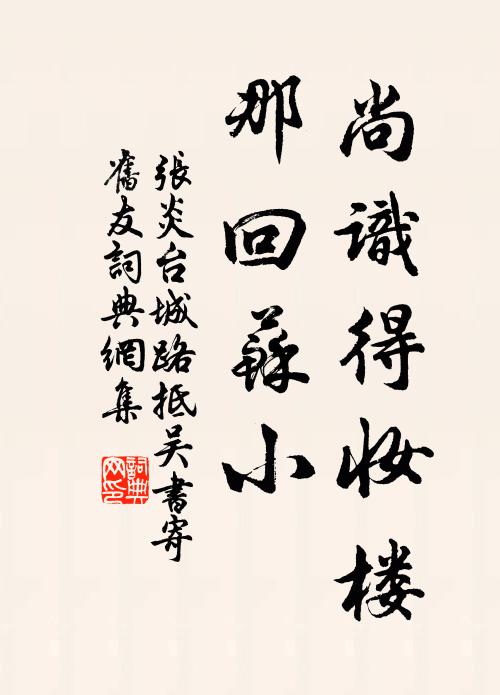 尚識得妆楼
那回蘇小
張炎台城路抵吴書寄
舊友詞典網集
詞典
网印